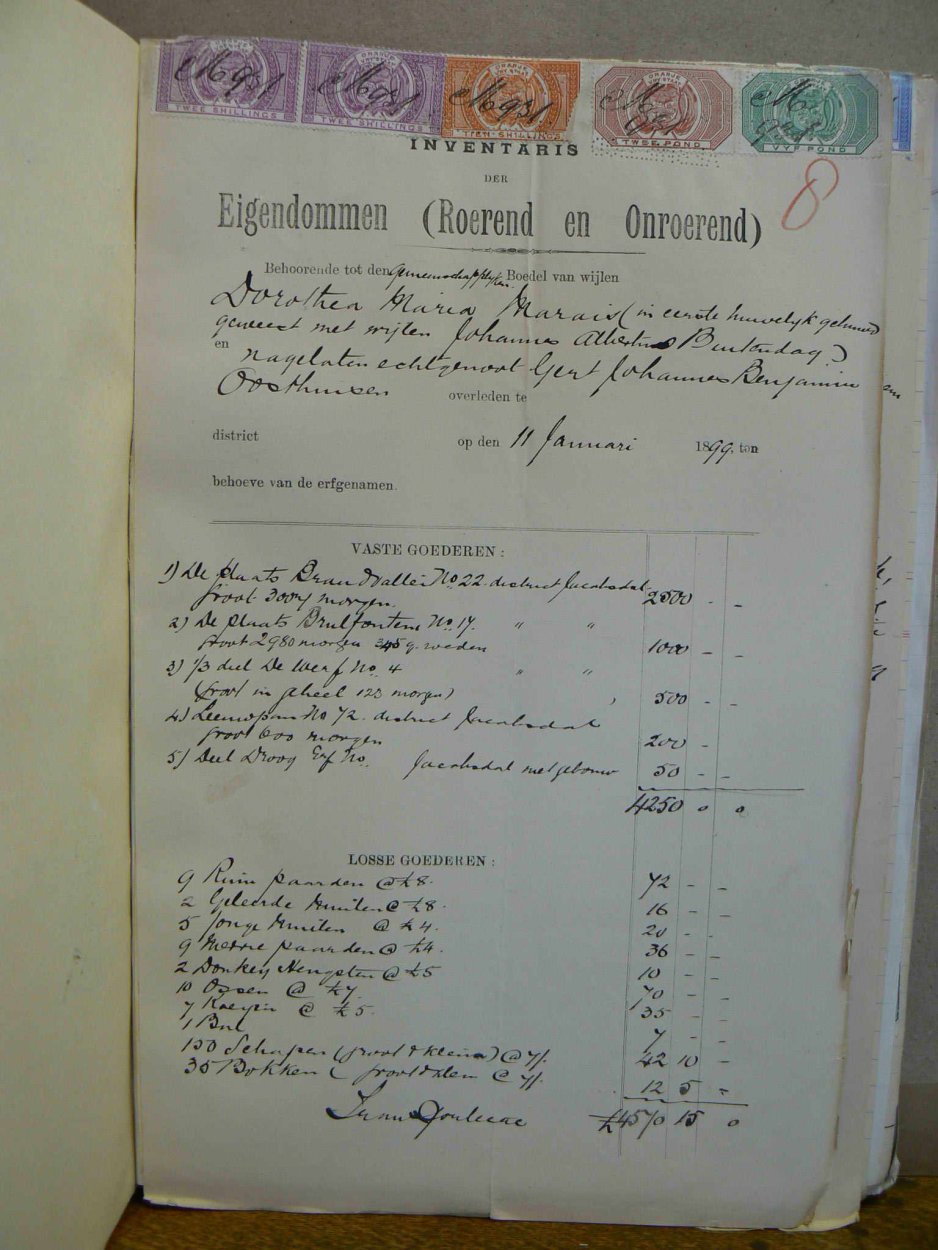 ORANJE VRY STAAT TWEE SHILLINGS
ORANJE VRY STAAT TWEE SHILLINGS
ORANJE VRY STAAT TIEN SHILLINGS
ORANJE VRY STAAT TWEE POND
ORANJE VRY STAAT VYF POND
INVENTARIS
8
DER
Eigendommen (Roerend en Onroerend)
Behoorende tot den Gemeenschappelyken Boedel van wijlen
Dorothea Maria Marais (in eerste huwelyk gehuwd
geweest met wijlen Johannes Albertus Buitendag)
en nagelaten echtgenoot Gert Johannes Benjamin
Oosthuisen overleden te
district op den 11 Januari 1899, ten
behoeve van de erfgenamen.
VASTE GOEDEREN:
1) De plaats Brandvallei No 22. district Jacobsdal
groot 3007 morgen. 2500 - -
2) De plaats Brulfontein No 17. " "
groot 2980 morgen 345 q. roeden 1000 - -
3) 1/3 deel De Werf No. 4 " "
(groot in geheel 123 morgen) 500 - -
4) Leeuwpan No 72. district Jacobsdal
groot 600 morgen 200 -
5) Deel Droog Erf No. Jacobsdal met gebouw 50 - -
4250 0 0
LOSSE GOEDEREN:
9 Ruin paarden @ £8. 72 - -
2 Geleerde Muilen @ £8. 16 - -
5 Jonge Muilen @ £4. 20 - -
9 Merrie paarden @ £4. 36 - -
2 Donkey Hengsten @ £5 10 - -
10 Ossen @ £7. 70 - -
7 Koeyen @ £5. 35 - -
1 Bul 7 - -
150 Schapen (groot & klein) @ 7/. 42 10 -
35 Bokken ( groot & klein @ 7/. 12 5 -
£4570 15 0